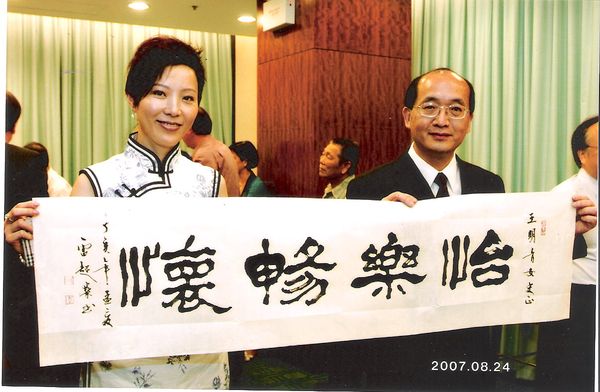 王明青女史正
怡樂暢懷
丁亥年孟夏
雷超榮書
2007.08.24